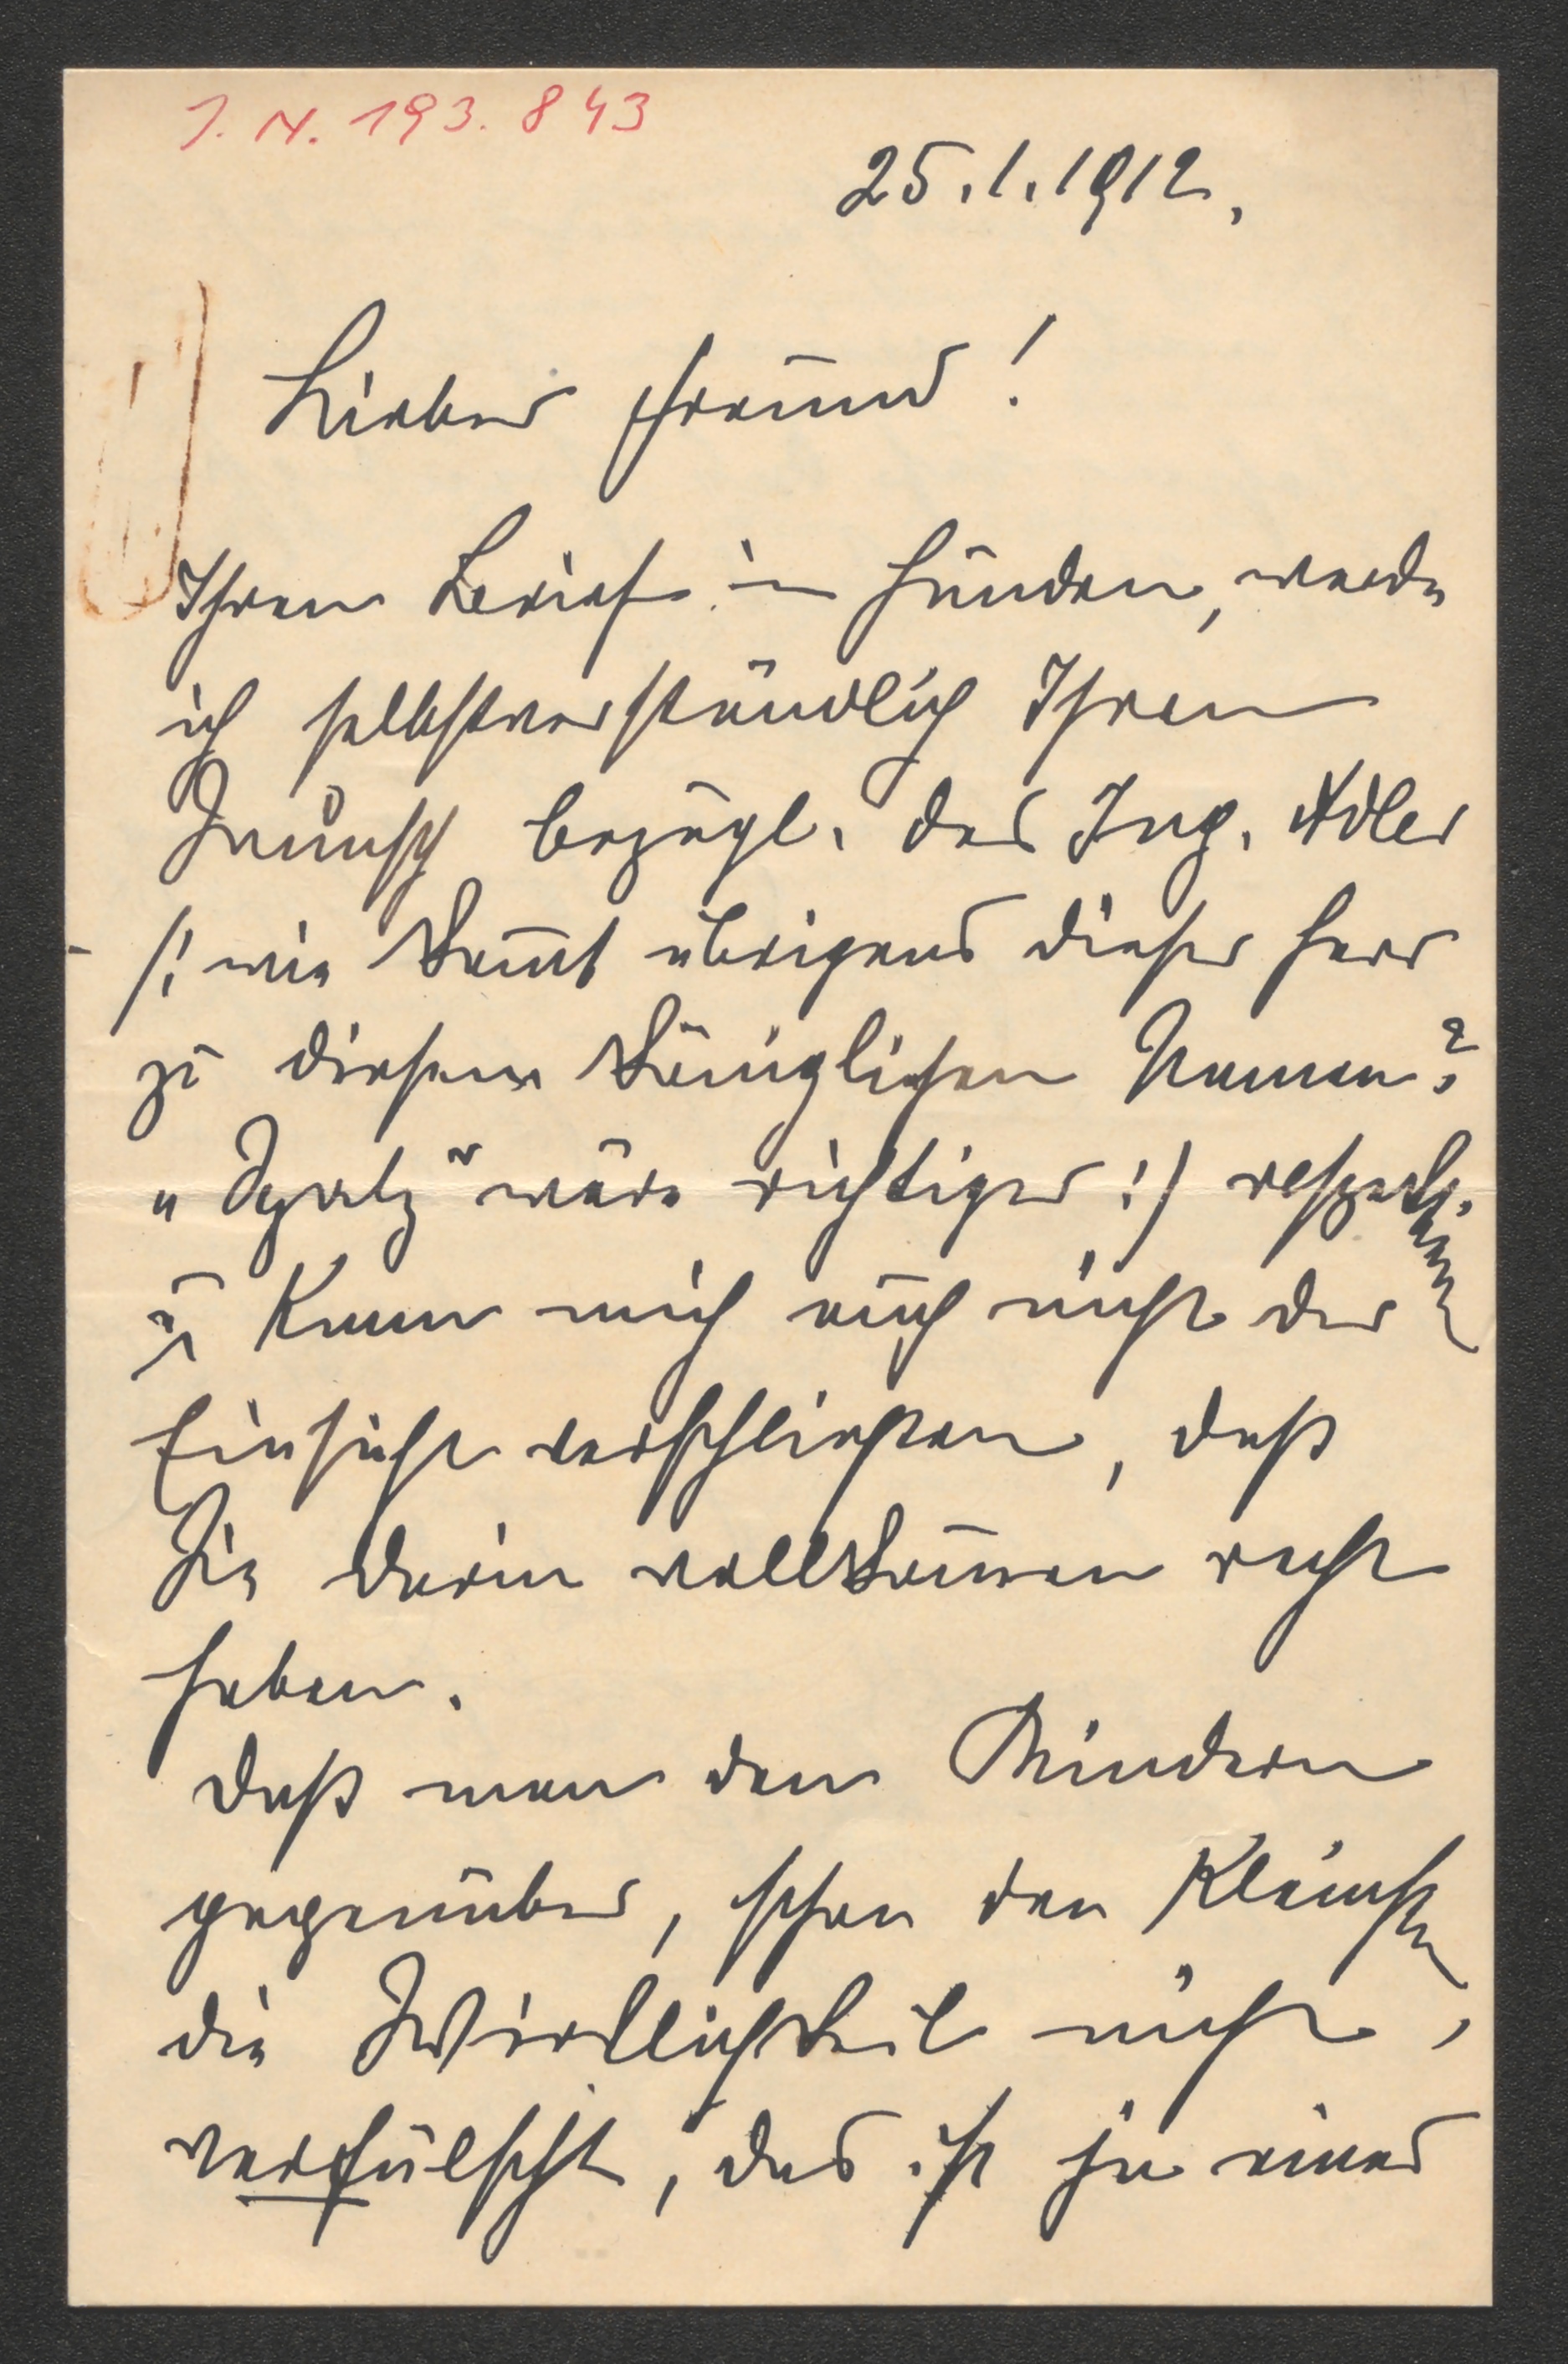 J. N. 193.843
25.1.1912.
Lieber Freund!
Ihren Brief in Händen, werde
ich selbstverständlich Ihren
Wunsch bezügl. des Ing. Adler
/: wie kom̅t übrigens dieser Herr
zu diesem königlichen Namen?
„Spatz" wäre richtiger :/ respekt.
u kann mich auch nicht der
Einsicht verschließen, daß
Sie darin vollkom̅en recht
haben.
Daß man den Kindern
gegenüber, schon den Kleinsten
die Wirklichkeit nicht
verfälscht, das ist ja eines